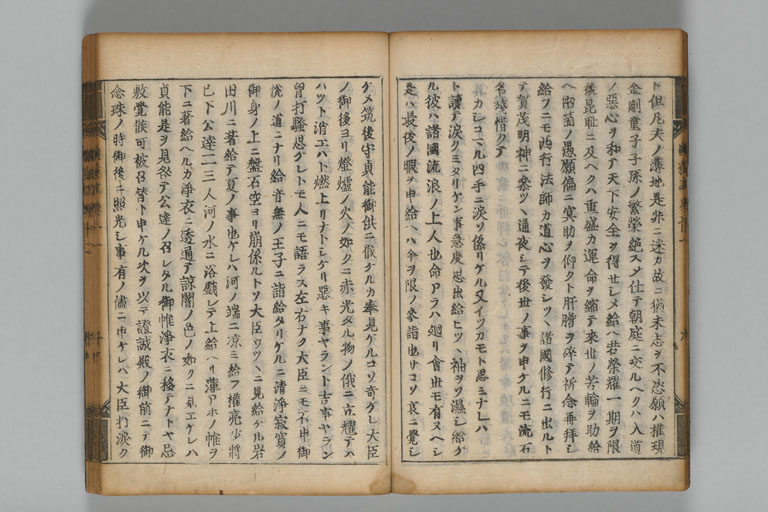 ト但凡夫ノ薄地是非ニ迷カ故ニ猶未志ヲ不恣願ハ権現
金剛童子子孫ノ繁榮絶スメ仕テ朝庭ニ交ルヘクハ入道
ノ惡心ヲ和テ天下安全ヲ得セシメ給ヘ若榮耀一期ヲ限
後昆耻ニ及ヘクハ重盛カ運命ヲ縮テ來世ノ苦輪ヲ助給
ヘ两箇ノ愚願偏ニ冥助ヲ仰ク卜肝膽ヲ碎テ祈念再拜シ
給フニモ西行法師カ道心ヲ發シツヽ諸國修行ニ出ルト
テ賀茂明神ニ參ツヽ通夜シテ後世ノ事ヲ申ケルニモ流石
名殘惜クテ
カシコマル四手ニ淚ソ係リケル又イツカモト思ミナレハ
ト讀テ淚クミタリケン事急度思出給ヒツヽ袖ヲソ濕シ給ケ
ル彼ハ諸國流浪ノ上人也命アラハ廻リ會世モ有ヌヘシ
是ハ最後ノ暇ヲ申給ヘハ今ヲ限ノ參詣也サコソ哀ニ覺シ
ケメ筑後守貞能御供ニ候ケルカ奉見ケルコソ奇ケレ大臣
ノ御後ヨリ燈爐ノ火ノ如クニ赤光タル物ノ俄ニ立耀テハ
ハツト消エハト燃上リナトシケリ惡キ事ヤラント吉事ヤラン
胷打騷思ケレトモ人ニモ語ラス左右ナク大臣ニモ不申御
悅ノ道ニナリ給音無ノ王子ニ詣給タリケルニ清淨寂寞ノ
御身ノ上ニ盤石空ヨリ崩係ルトソ大臣ウツヽニ見給ケル岩
田川ニ著給テ夏ノ事也ケレハ河ノ端ニ凉ミ給フ權亮少將
已下公達二三人河ノ水ニ浴戲レテ上給ヘリ薄アホノ帷ヲ
下ニ著給ヘルカ淨衣ニ透通テ諒闇ノ色ノ如クニ見エケレハ
貞能是ヲ見咎テ公達ノ召レタル御帷淨衣ニ移テナトヤ忌
敷覺候可被召替ト申ケル次ヲ以テ證誠殿ノ御前ニテ御
念珠ノ時御後ニ照光シ事有ノ儘ニ申ケレハ大臣打淚ク